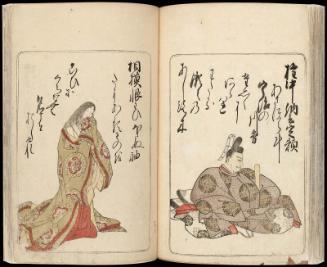 権中納言定頼
あさほらけ
宇治の
たえ〳〵に
あらはれ
わたる
瀬々の
あしろ木
相模 恨わひほさぬ袖
たにあるものを
こひに
くちなむ
名こそ
をしけれ